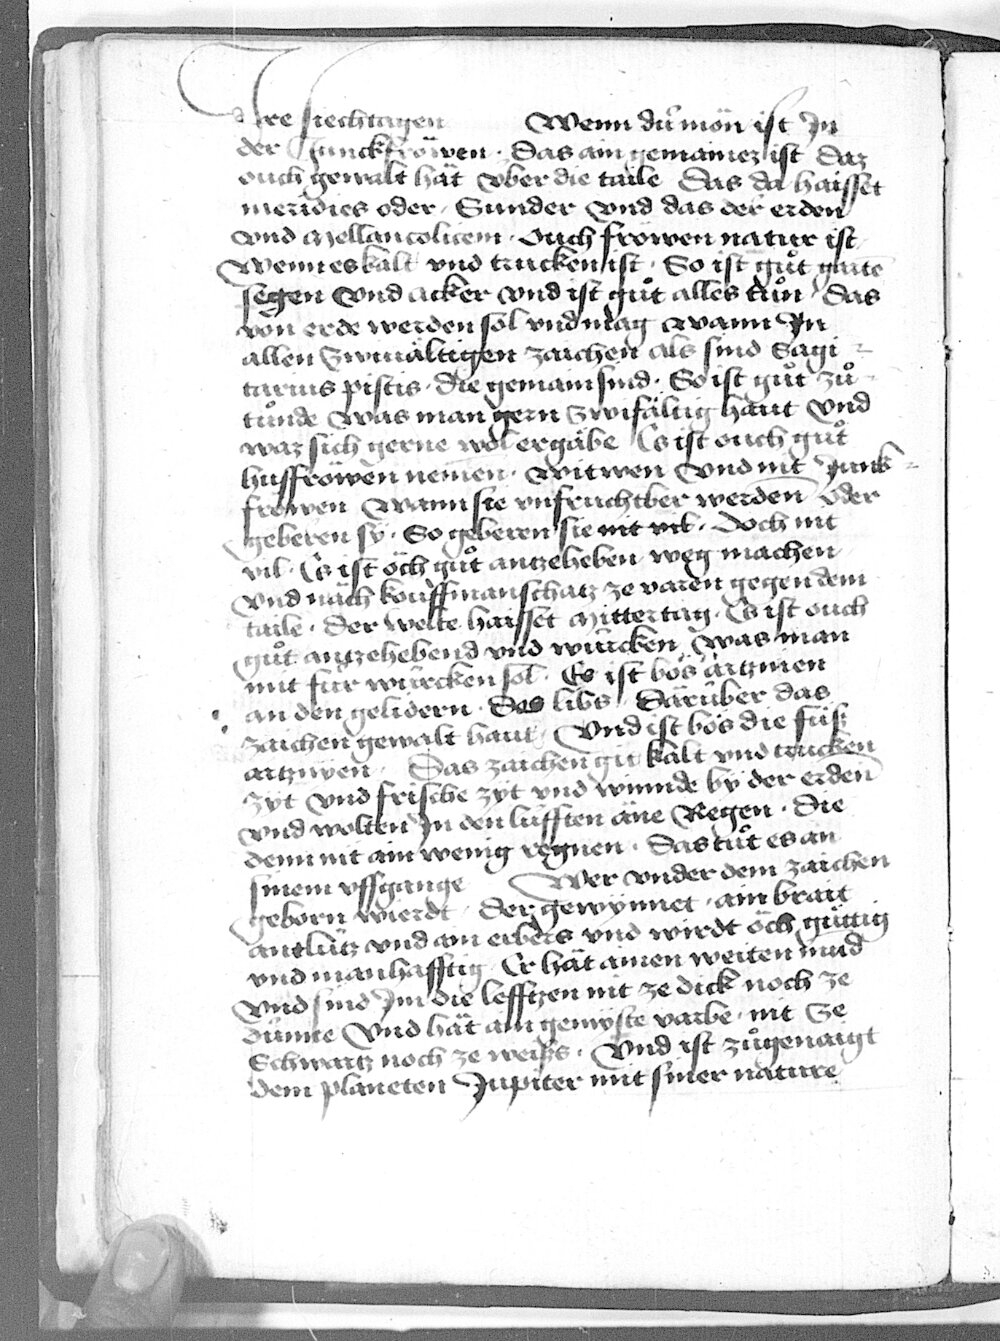 Ire siechtagen Wenn du̍ mön ist Jn
der Junckfröwen · Das ain gemainez ist Daz
ouch gewalt hät vber die taile Das da haisset
meridies oder Sunder vnd das der erden
vnd mellancolicem · Ouch fröwen natur ist
Wenn es kalt vnd trucken ist · So ist gůt
segen vnd acker vnd ist gůt alles tůn Das
von erde werden sol vnd mag wann Jn
allen Zwinältigen zaichen als sind Sagi
tarius piscis · die gemain sind · So ist gůt zů
tůnde was man gern Zwifältig haut vnd
waz sich gerne wol ergäbe Es ist ouch gůt
husfröwen nemen · witwen vnd nit Junk
fröwen Wann sie vnfruchtber werden oder
geberen sy · So geberen sie nit vil · doch nit
vil · Es ist öch gůt anzeheben weg machen
vnd näch kouffmanschatz ze varen gegen dem
taile · der welte haisset Mittertag · Es ist ouch
gůt anzehebend vnd würcken was man
mit für würcken sol · Es ist bös ärtznien
an den gelidern · Des libs Darüber das
zaichen gewalt haut · Vnd ist bös die füß
artznyen Das zaichen git kalt vnd trucken
zyt vnd frische zyt vnd winnde by der erden
vnd wolken Jn den lüfften äne Regen · Die
denn nit ain wenig regnen · Das tůt es an
sinem vffgange Wer vnder dem zaichen
geborn wierdt · Der gewynnet · ain brait
antlütz vnd ain vnd wirdt öch güttig
vnd manhafftig Er hät ainen weiten mud
vnd sind Jm die lefftzen nit ze dick noch ze
dünne Vnd hät ain gemyste varbe · nit Ze
Schwartz noch ze weiss · Vnd ist zůgenaigt
dem planeten Jupiter mit siner nature